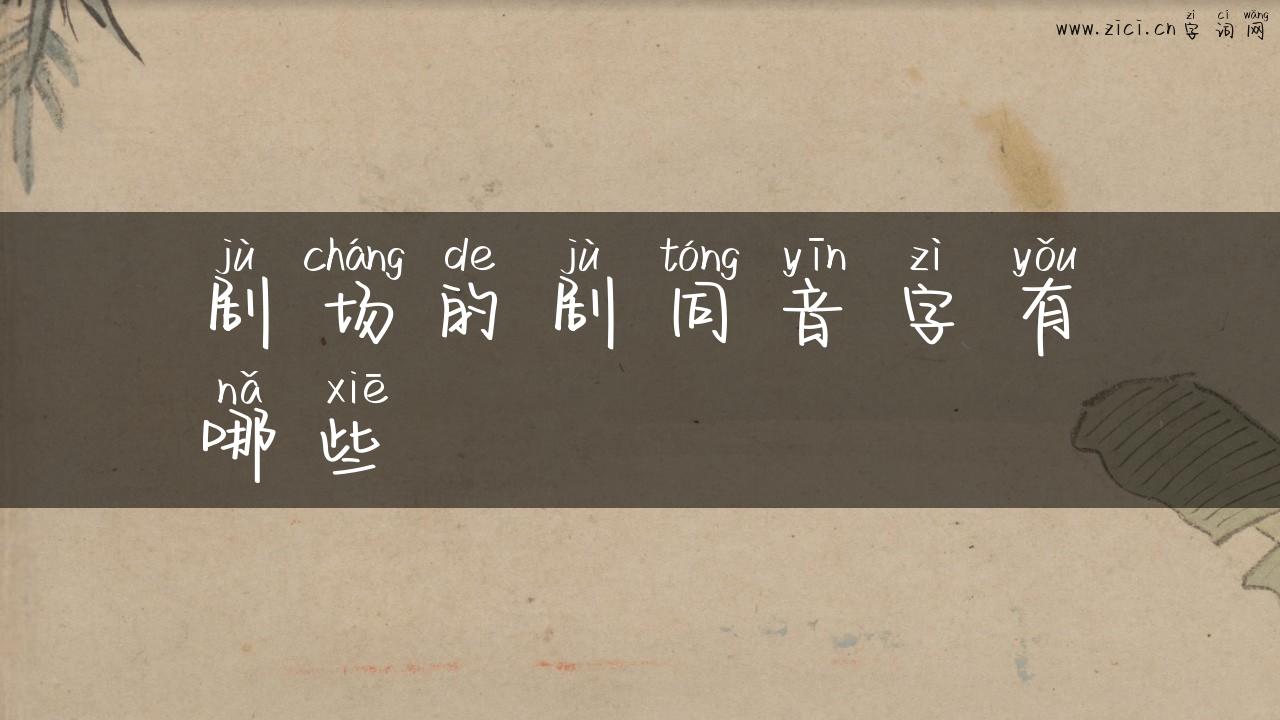 zì cí wǎng
www.zici.cn 字词网
jù chǎng de jù tóng yīn zì yǒu
剧场的剧同音字有
nǎ xiē
哪些